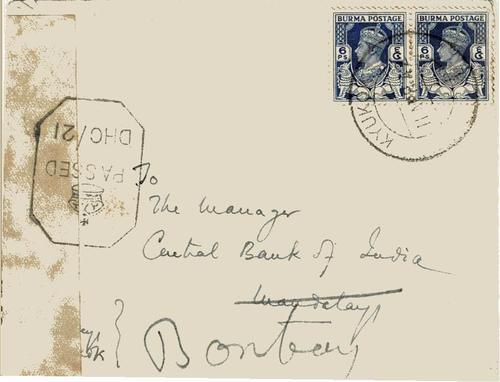 BURMA POSTAGE BURMA POSTAGE
6 Ps 6 Ps
KYUKO
PASSED
DHC/21
To
The Manager
Central Bank of India
Mandalay
Bombay